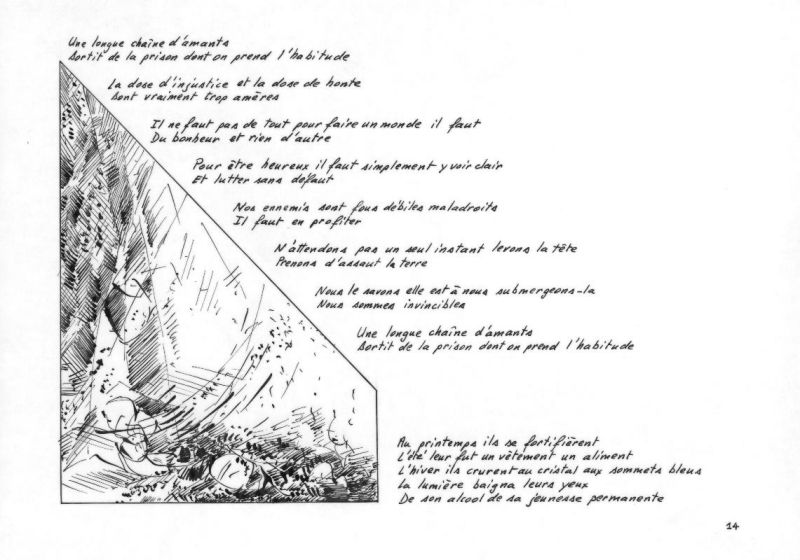 Une longue chaîne d'amants
Sortit de la prison dont on prend l'habitude
La dose d'injustice et la dose de honte
Sont vraiment trop amères
Il ne faut pas de tout pour faire un monde il faut
Du bonheur et rien d'autre
Pour être heureux il faut simplement y voir clair
Et lutter sans défaut
Nos ennemis sont fous débiles maladroits
Il faut en profiter
N'attendons pas un seul instant levons la tête
Prenons d'assaut la terre
Nous le savons elle est à nous submergeons-la
Nous sommes invincibles
Une longue chaîne d'amants
Sortit de la prison dont on prend l'habitude
Au printemps ils se fortifièrent
L'été leur fut un vêtement un aliment
L'hiver ils crurent au cristal aux sommets bleus
La lumière baigna leurs yeux
De son alcool de sa jeunesse permanente
14